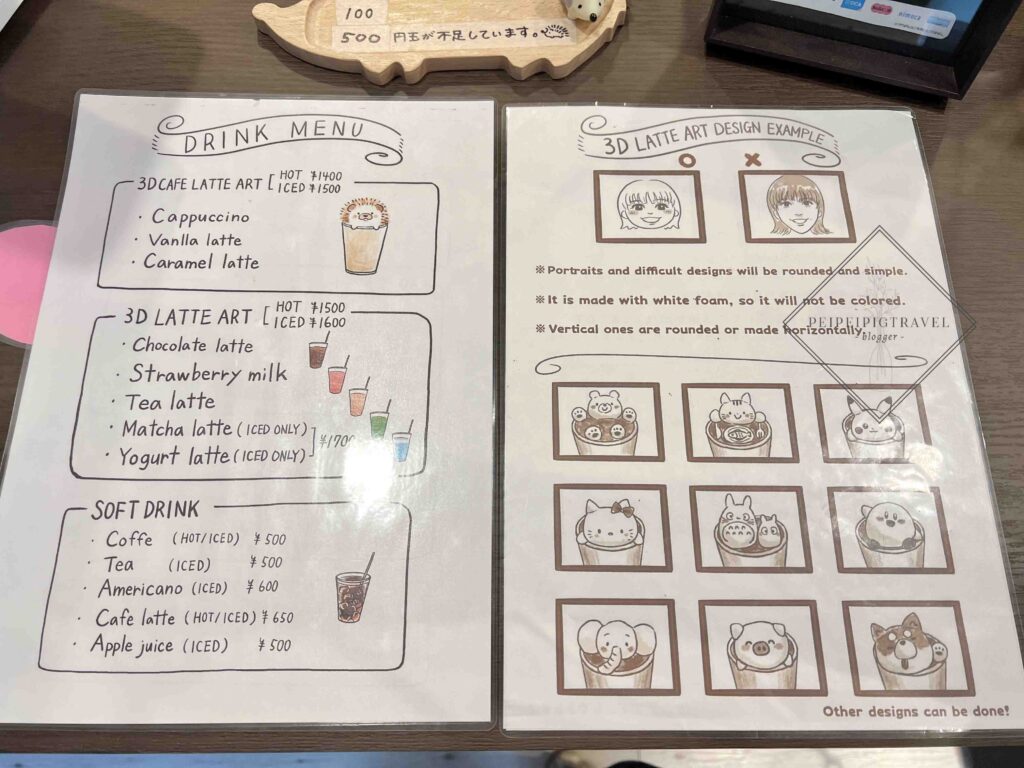 100
500 円玉が不足しています。
DRINK MENU
3D CAFE LATTE ART [ HOT ¥1400
ICED ¥1500
・Cappuccino
・Vanlla latte
・Caramel latte
3D LATTE ART [ HOT ¥1500
ICED ¥1600
・Chocolate latte
・Strawberry milk
・Tea latte
・Matcha latte (ICED ONLY)
・Yogurt latte (ICED ONLY) ] ¥1700
SOFT DRINK
・Coffe (HOT/ICED) ¥500
・Tea (ICED) ¥500
・Americano (ICED) ¥600
・Cafe latte (HOT/ICED) ¥650
・Apple juice (ICED) ¥500
3D LATTE ART DESIGN EXAMPLE
○ ×
※Portraits and difficult designs will be rounded and simple.
※It is made with white foam, so it will not be colored.
※Vertical ones are rounded or made horizontally.
PEIPEIPIGTRAVEL
- blogger -
Other designs can be done!